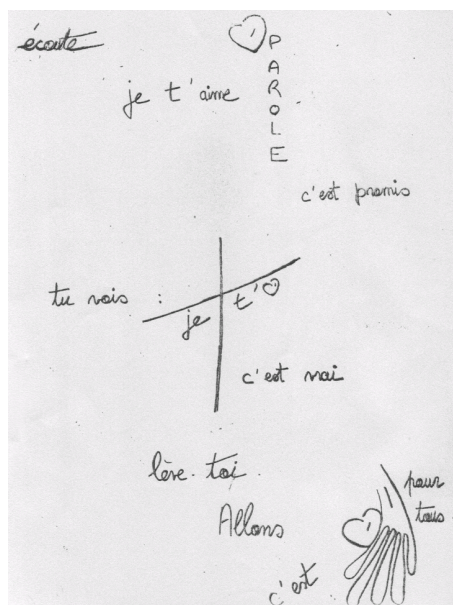 écoute
PAROLE
je t'aime
c'est promis
tu vois :
je t'
c'est vrai
lève-toi.
Allons
pour
tous
c'est